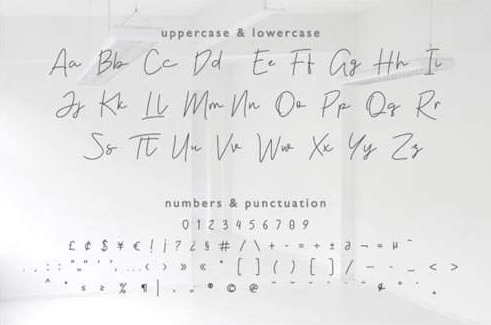 uppercase & lowercase
Aa Bb Cc Dd Ee Ff Gg Hh Ii
Jj Kk Ll Mm Nn Oo Pp Qq Rr
Ss Tt Uu Vv Ww Xx Yy Zz
numbers & punctuation
0 1 2 3 4 5 6 7 8 9
£ ¢ $ ¥ € ! ¡ ? ¿ § # / \ + - = ÷ ± ∂ ¬ ≈ µ ~
‹ › » « [ ] ( ) [ ] / – - _ < >
^ ≤ ≥ % ¶ | ® © @ &